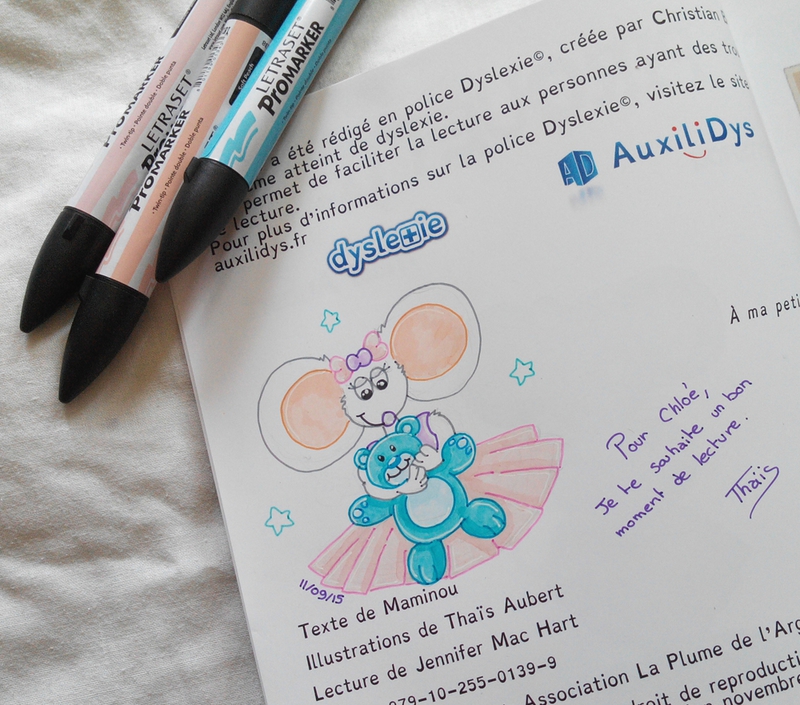 LETRASET
PROMARKER
• Twin-tip • Pointe double • Doble punta
LETRASET
PROMARKER
• Twin-tip • Pointe double • Doble punta
LETRASET
PROMARKER
a été rédigé en police Dyslexie©, créée par Christian
atteint de dyslexie.
permet de faciliter la lecture aux personnes ayant des
lecture.
Pour plus d'informations sur la police Dyslexie©, visitez le site
auxilidys.fr
AD AuxiliDys
dyslexie
À ma
Pour Chloé,
Je te souhaite un bon
moment de lecture.
Thaïs
11/09/15
Texte de Maminou
Illustrations de Thaïs Aubert
Lecture de Jennifer Mac Hart
979-10-255-0139-9
Association La Plume de
de reproduction